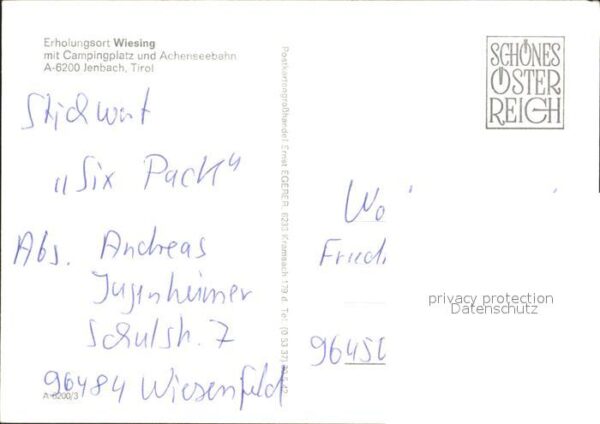 Erholungsort Wiesing
mit Campingplatz und Achenseebahn
A-6200 Jenbach, Tirol
SCHÖNES
ÖSTER
REICH
Stichwort
"Six Pack"
Abs. Andreas
Jugenheimer
Schulstr. 7
96484 Wiesenfeld
A-6200/3
Postkartengroßhandel Ernst EGERER, 6233 Kramsach 179 d, Tel. (0 53 37)
Wo
Fried
9645
privacy protection
Datenschutz